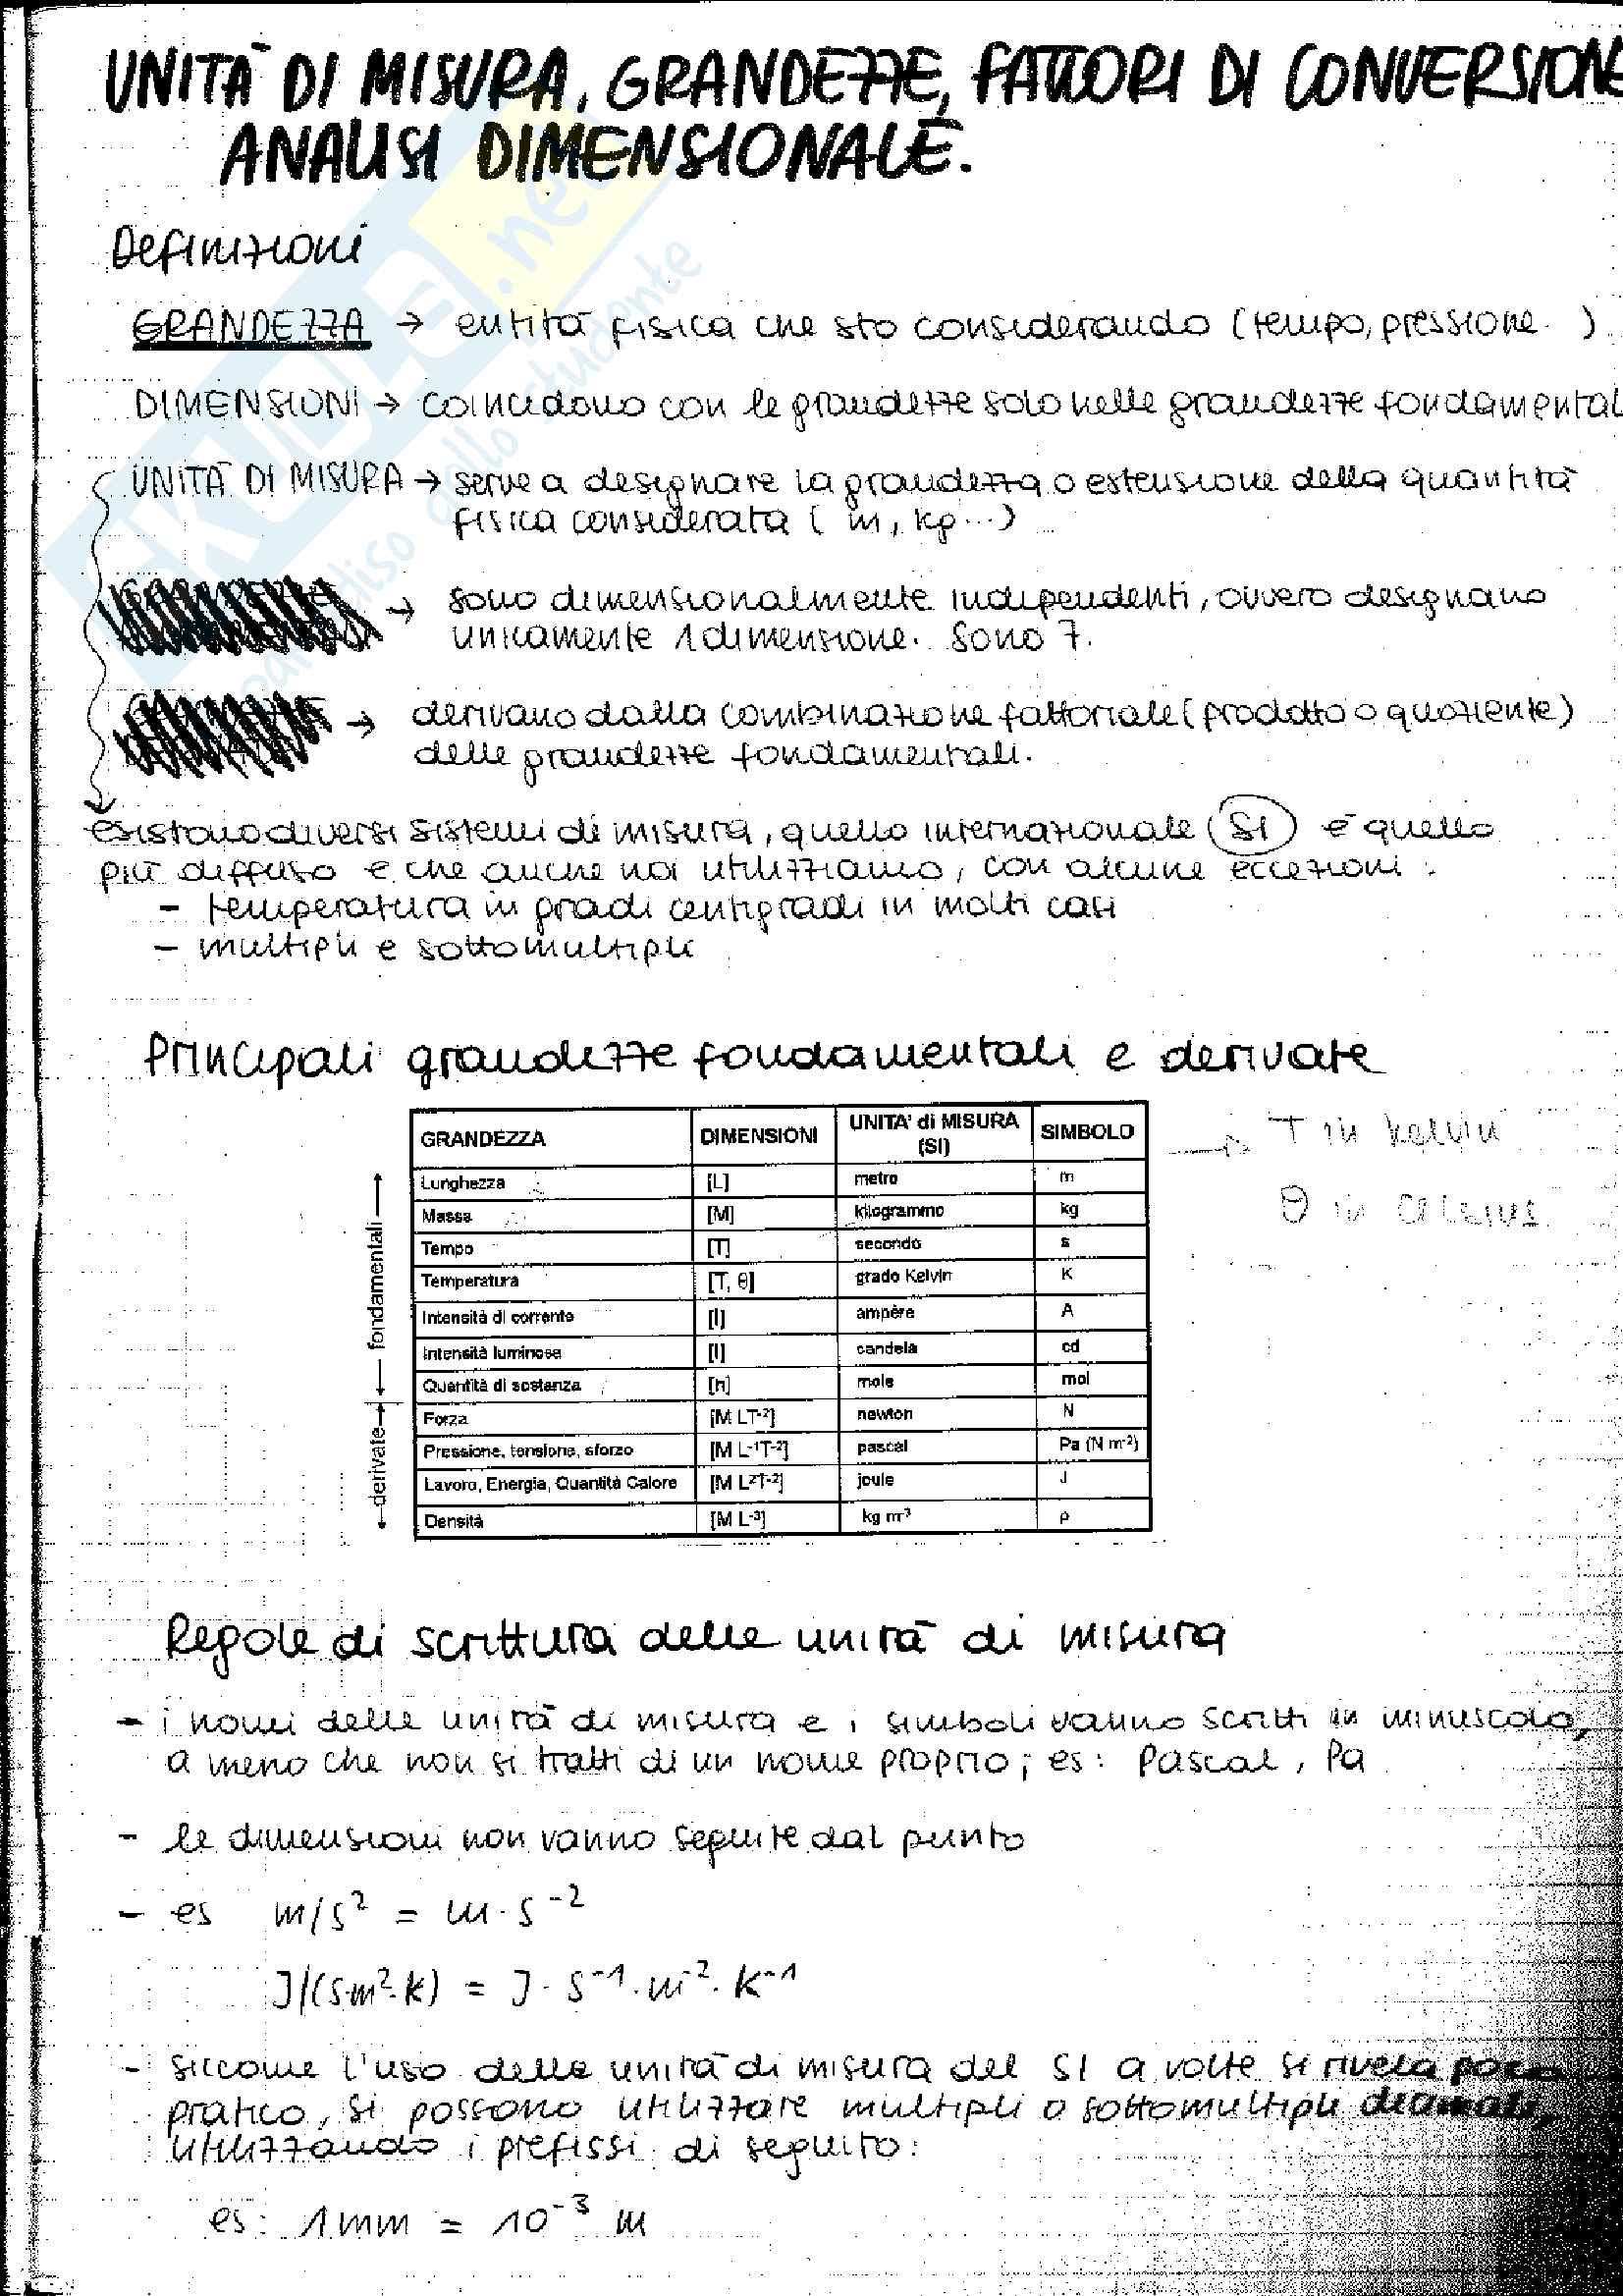 UNITÀ DI MISURA, GRANDEZZE, FATTORI DI CONVERSIONE
ANALISI DIMENSIONALE.
Definizioni
GRANDEZZA → entità fisica che sto considerando (tempo, pressione )
DIMENSIONI → coincidono con le grandezze solo nelle grandezze fondamental
UNITÀ DI MISURA → serve a designare la grandezza o estensione della quantità
fisica considerata ( m, kg...)
→ sono dimensionalmente indipendenti, ovvero designano
unicamente 1 dimensione. Sono 7.
→ derivano dalla combinazione fattoriale (prodotto o quoziente)
delle grandezze fondamentali.
esistono diversi sistemi di misura, quello internazionale (SI) è quello
più diffuso e che anche noi utilizziamo, con alcune eccezioni :
- temperatura in gradi centigradi in molti casi
- multipli e sottomultipli
Principali grandezze fondamentali e derivate
GRANDEZZA DIMENSIONI UNITA' di MISURA (SI) SIMBOLO
Lunghezza [L] metro m
Massa [M] kilogrammo kg
Tempo [T] secondo s
Temperatura [T, θ] grado Kelvin K
Intensità di corrente [I] ampère A
Intensità luminosa [I] candela cd
Quantità di sostanza [n] mole mol
Forza [M LT-2] newton N
Pressione, tensione, sforzo [M L-1T-2] pascal Pa (N m-2)
Lavoro, Energia, Quantità Calore [M L2T-2] joule J
Densità [M L-3] kg m-3 ρ
fondamentali
derivate
→ T in Kelvin
θ in Celsius
Regole di scrittura delle unità di misura
- i nomi delle unità di misura e i simboli vanno scritti in minuscolo,
a meno che non si tratti di un nome proprio; es: Pascal, Pa
- le dimensioni non vanno seguite dal punto
- es m/s² = m·s⁻²
J/(s·m²·K) = J·s⁻¹·m⁻²·K⁻¹
- siccome l'uso delle unità di misura del SI a volte si rivela poco
pratico, si possono utilizzare multipli o sottomultipli decimali,
utilizzando i prefissi di seguito:
es: 1mm = 10⁻³ m
SKUOLA.net
paradiso dello studente